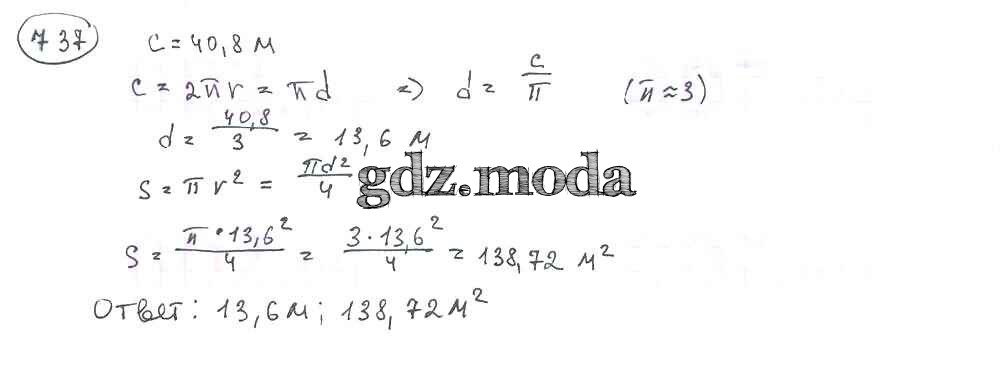 737 C = 40,8 м
C = 2πr = πd => d = C/π (π ≈ 3)
d = 40,8/3 = 13,6 м
S = πr² = πd²/4
gdz.moda
S = π·13,6²/4 = 3·13,6²/4 = 138,72 м²
Ответ: 13,6м; 138,72м²